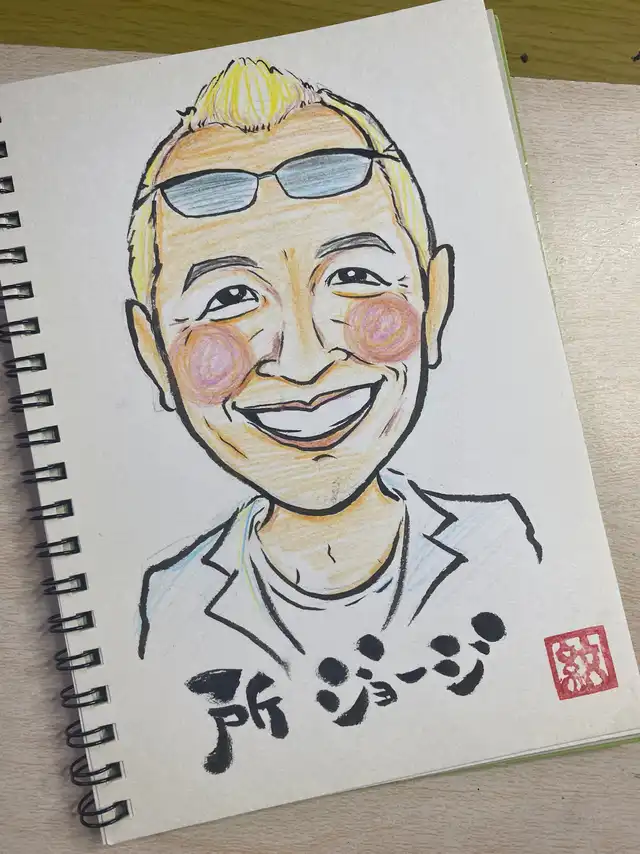 所 ジョージ